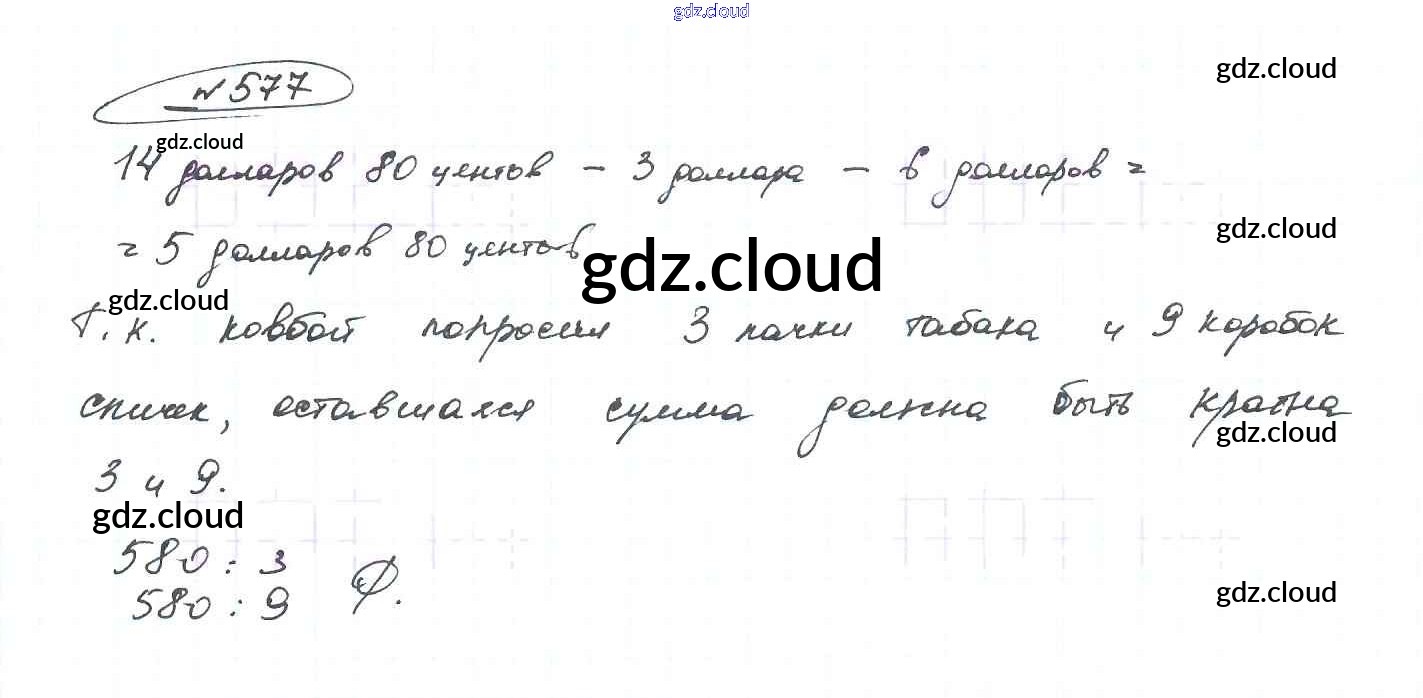 gdz.cloud
№577
gdz.cloud
gdz.cloud
14 долларов 80 центов – 3 доллара – 6 долларов =
= 5 долларов 80 центов
gdz.cloud
gdz.cloud
gdz.cloud
Т.к. ковбой попросил 3 пачки табака и 9 коробок
спичек, оставшаяся сумма должна быть кратна
gdz.cloud
3 и 9.
gdz.cloud
580 : 3
580 : 9
gdz.cloud